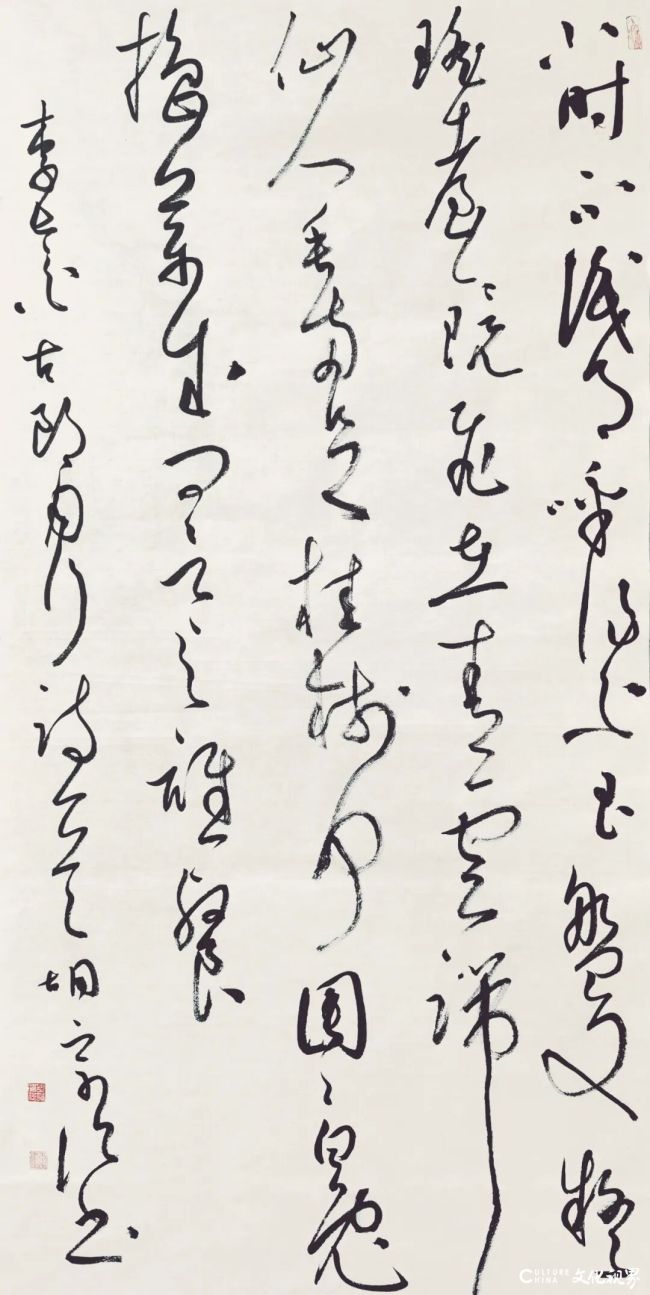 小时不识月呼作白玉盘又疑
瑶台镜飞在青云端
仙人垂两足桂树何团团白兔
捣药成问言与谁餐
李太白古朗月行诗 胡 书
CULTURE
CHINA 文化视界